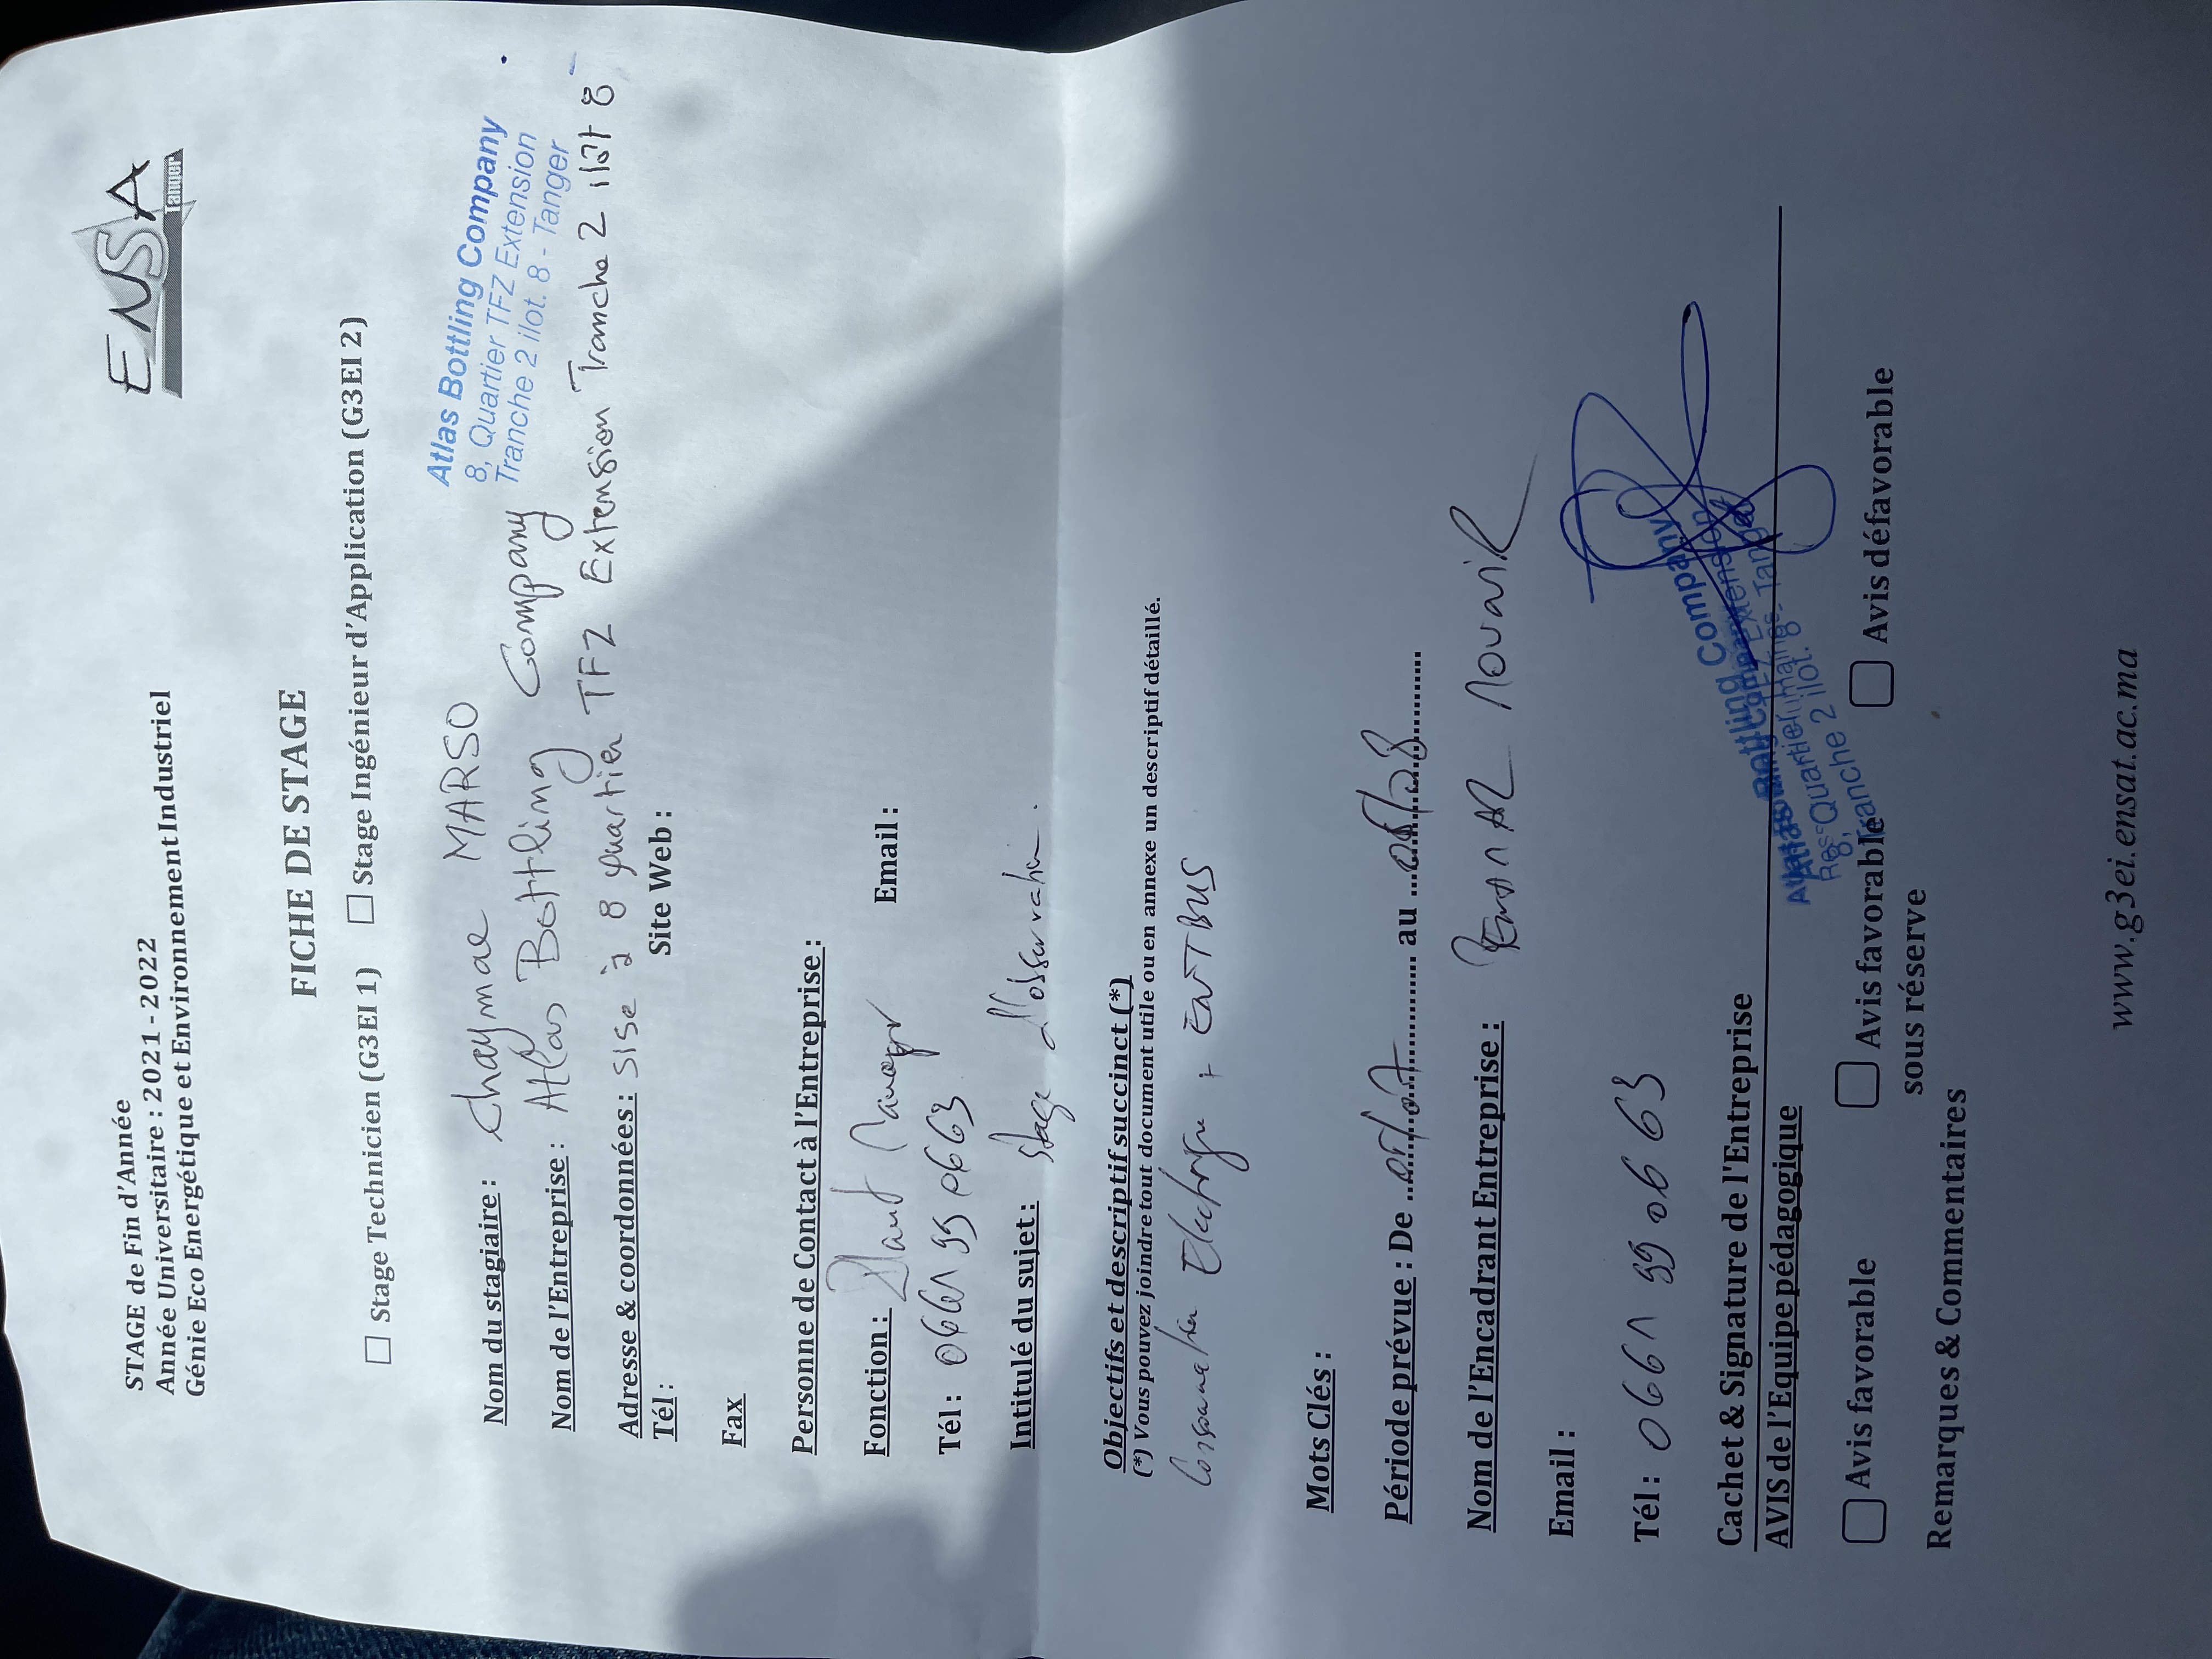 STAGE de Fin d'Année
Année Universitaire : 2021-2022
Génie Eco Energétique et Environnement Industriel
ENSA
Tanger
FICHE DE STAGE
Stage Technicien (G3EI 1) Stage Ingénieur d'Application (G3EI 2)
Atlas Bottling Company
8, Quartier TFZ Extension
Tranche 2 ilot. 8 - Tanger
Nom du stagiaire : Chaymae MARSO
Nom de l'Entreprise : Atlas Bottling Company
Adresse & coordonnées : Sise à 8 quartier TFZ Extension Tranche 2 ilôt 8
Tél : Site Web :
Fax
Personne de Contact à l'Entreprise :
Fonction : Plant Manager Email :
Tél : 0661 99 0663
Intitulé du sujet : Stage d'observation.
Objectifs et descriptif succinct (*)
(*) Vous pouvez joindre tout document utile ou en annexe un descriptif détaillé.
Consommation Electrique
Mots Clés :
Période prévue : De ...05/07... au ...05/08...
Nom de l'Encadrant Entreprise :
Email :
Tél : 0661 99 06 63
Cachet & Signature de l'Entreprise
Atlas Bottling Company
8, Quartier TFZ Extension
Tranche 2 ilot. 8 - Tanger
AVIS de l'Equipe pédagogique
Avis favorable Avis favorable sous réserve Avis défavorable
Remarques & Commentaires
www.g3ei.ensat.ac.ma